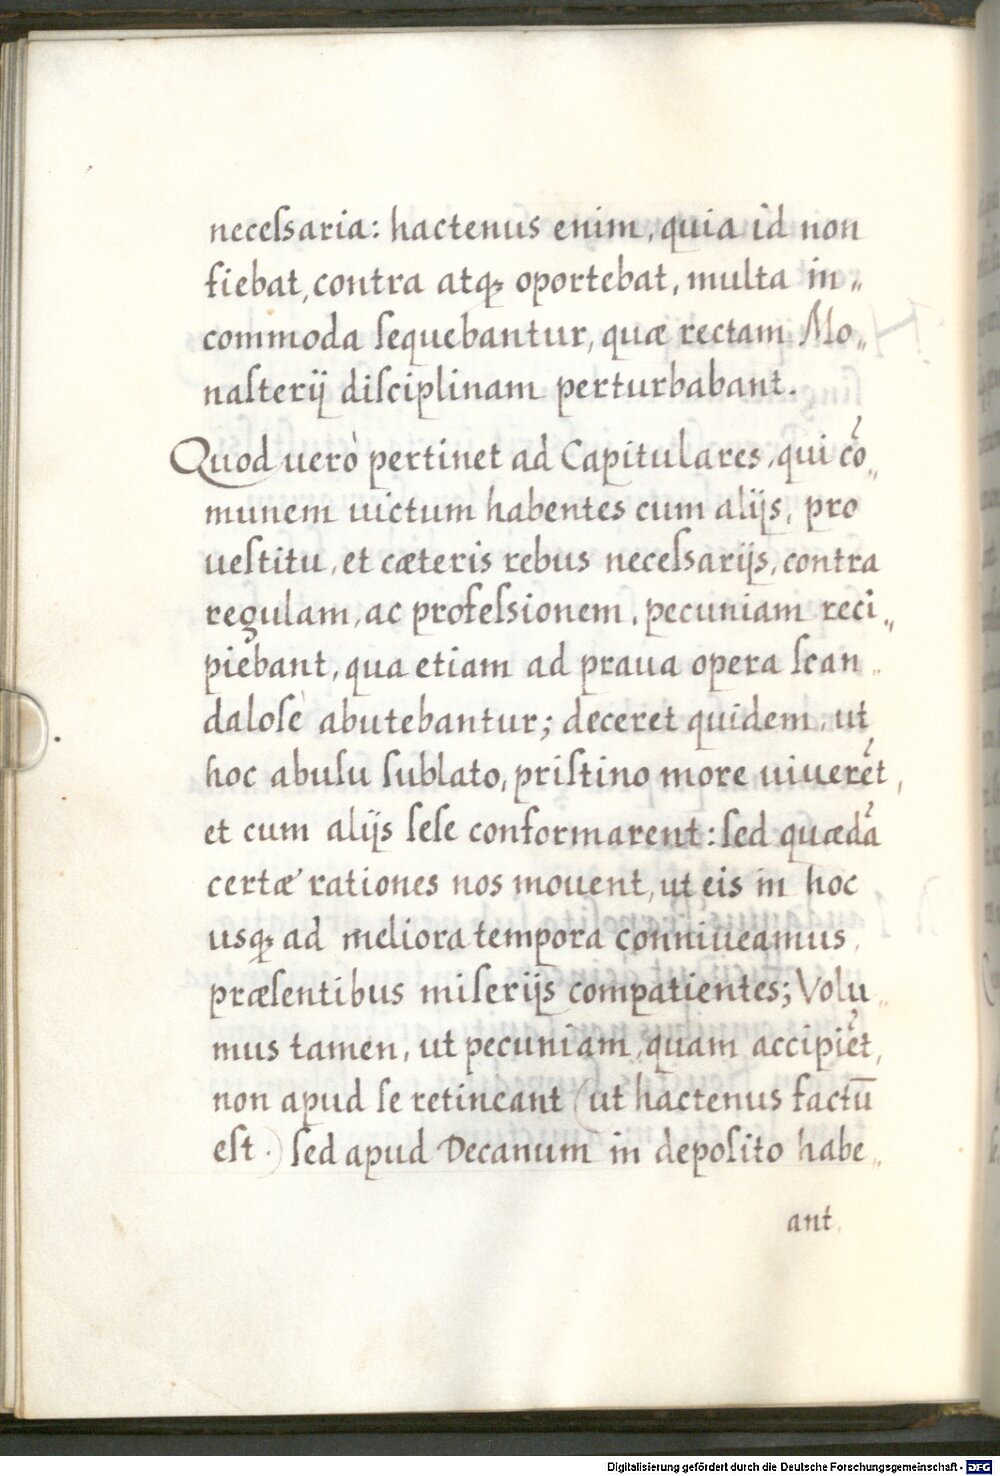 neceſsaria: hactenus enim, quia id non
fiebat, contra atqꝫ oportebat, multa in„
commoda ſequebantur, quæ rectam Mo„
naſterij diſciplinam perturbabant.
Quod uerò pertinet ad Capitulares, qui cõ„
munem uictum habentes cum alijs, pro
ueſtitu, et cæteris rebus neceſsarijs, contra
regulam, ac profeſsionem, pecuniam reci„
piebant, qua etiam ad praua opera ſcan„
daloſè abutebantur; deceret quidem, ut
hoc abuſu ſublato, priſtino more uiuerẽt,
et cum alijs ſeſe conformarent: ſed quædã
certæ rationes nos mouent, ut eis in hoc
usqꝫ ad meliora tempora conniueamus,
præſentibus miſerijs compatientes; Volu„
mus tamen, ut pecuniam, quam accipiẽt,
non apud ſe retineant (ut hactenus factū
eſt.) ſed apud Decanum in depoſito habe„
ant.
Digitalisierung gefördert durch die Deutsche Forschungsgemeinschaft - DFG